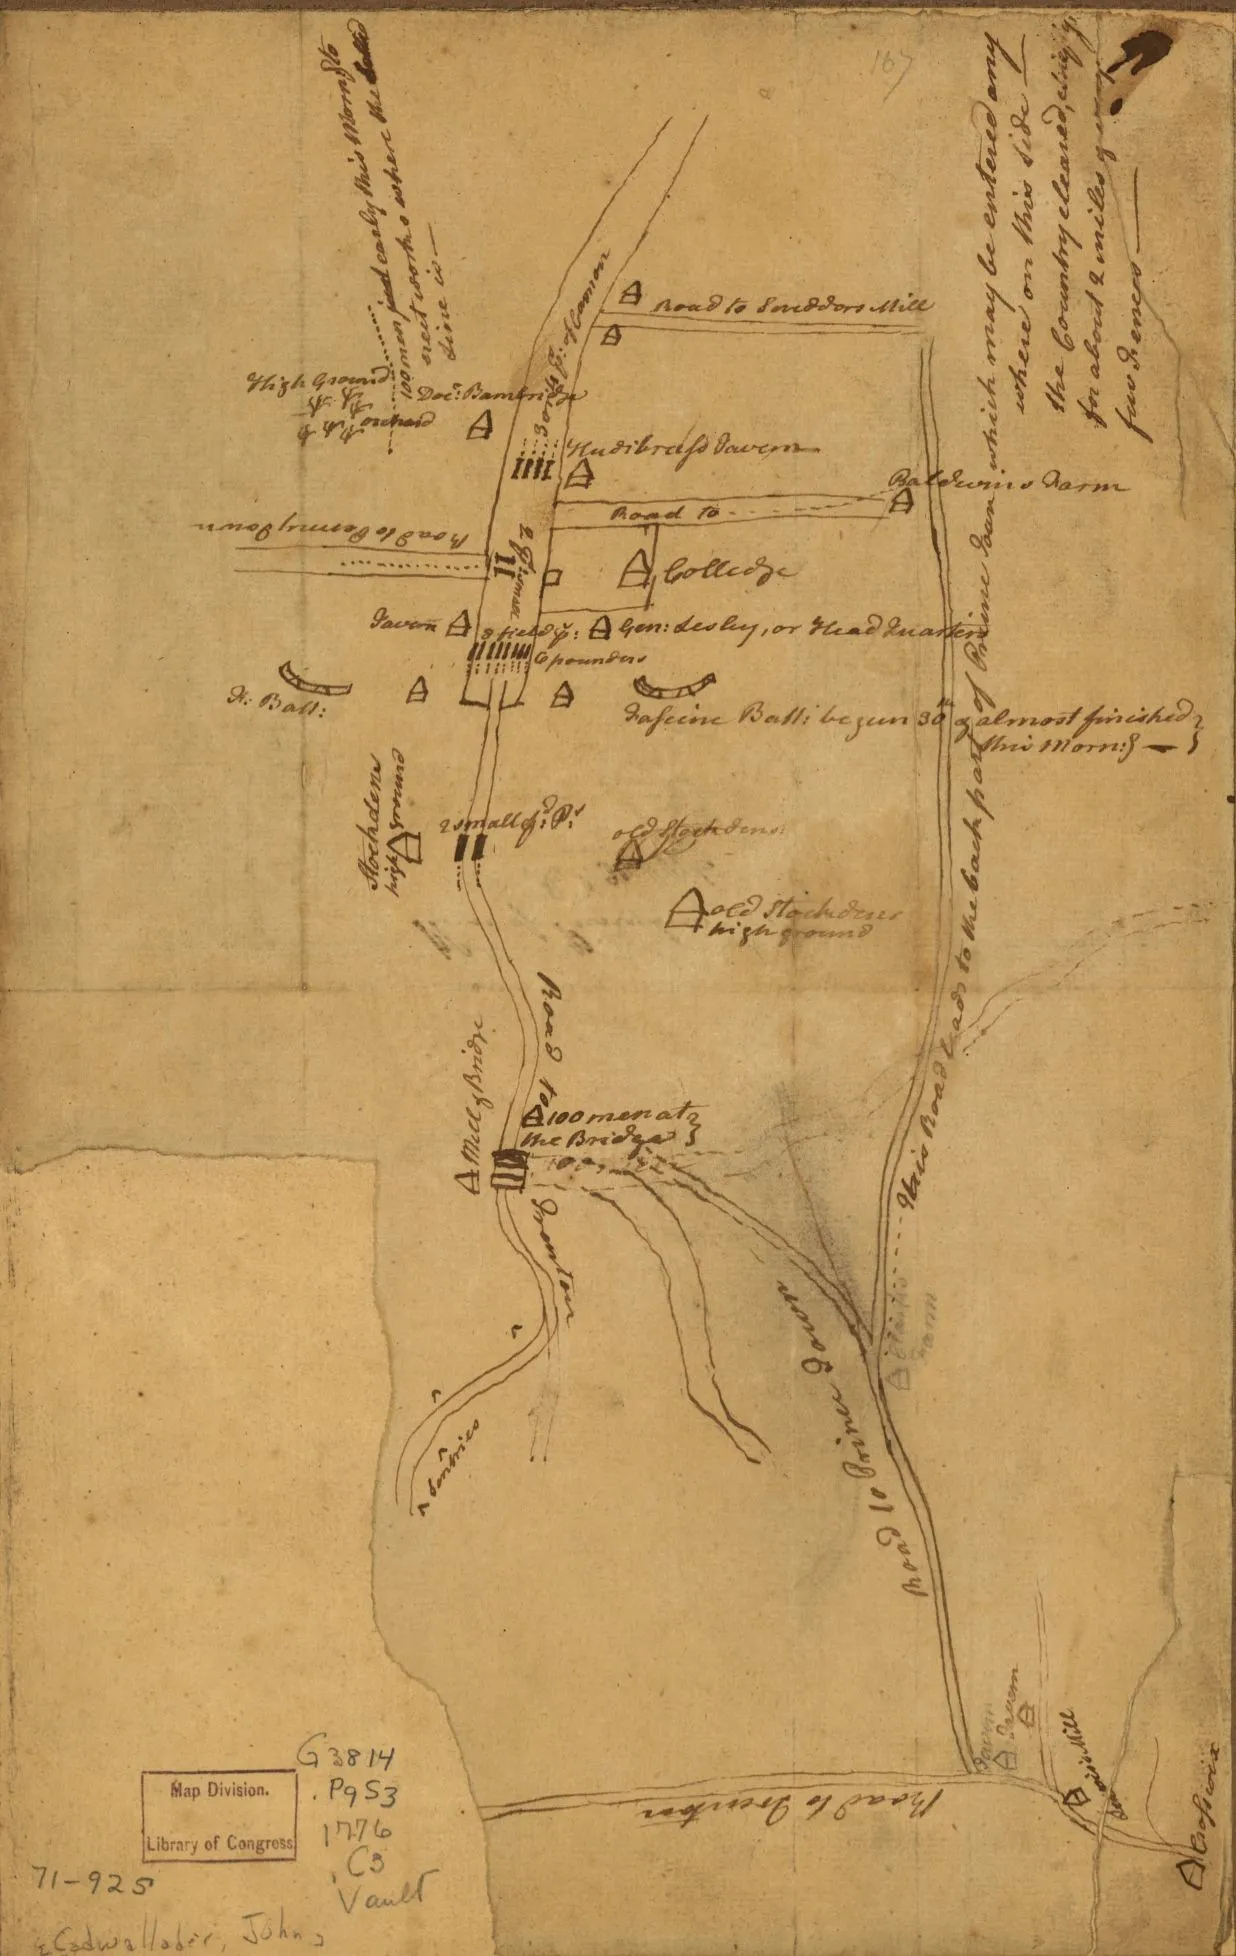 167
100 men early this Morng to
erect works where the dotted
line is —
which may be entered any
where on this side —
the Country cleared, chiefly,
for about 2 miles
few Fences —
This Road leads to the back part of Prince Town
Road to Scuddors Mill
High Ground
Orchard
Docr: Bambridge
30 or 40 ps: of Cannon
Hudibrass Tavern
Baldwins Farm
Road to
Road to Pennytown
Colledge
Tavern
8 field ps:
6 pounders
Gen: Lesley, or Head Quarters
F: Batt:
Fascine Batt: begun 30th & almost finished
this Morn:g —
Stockdens
high ground
2 small fd: Ps:
old Stockdens
old Stockdens
high ground
Road to
Trentown
Mill & Bridge
100 men at
the Bridge
Sentries
Road to Prince Town
Farm
Tavern
Tavern
Mill
Road to Trenton
Crosswix
Map Division.
Library of Congress
G3814
.P9S3
1776
.C3
Vault
71-925
Cadwallader, John